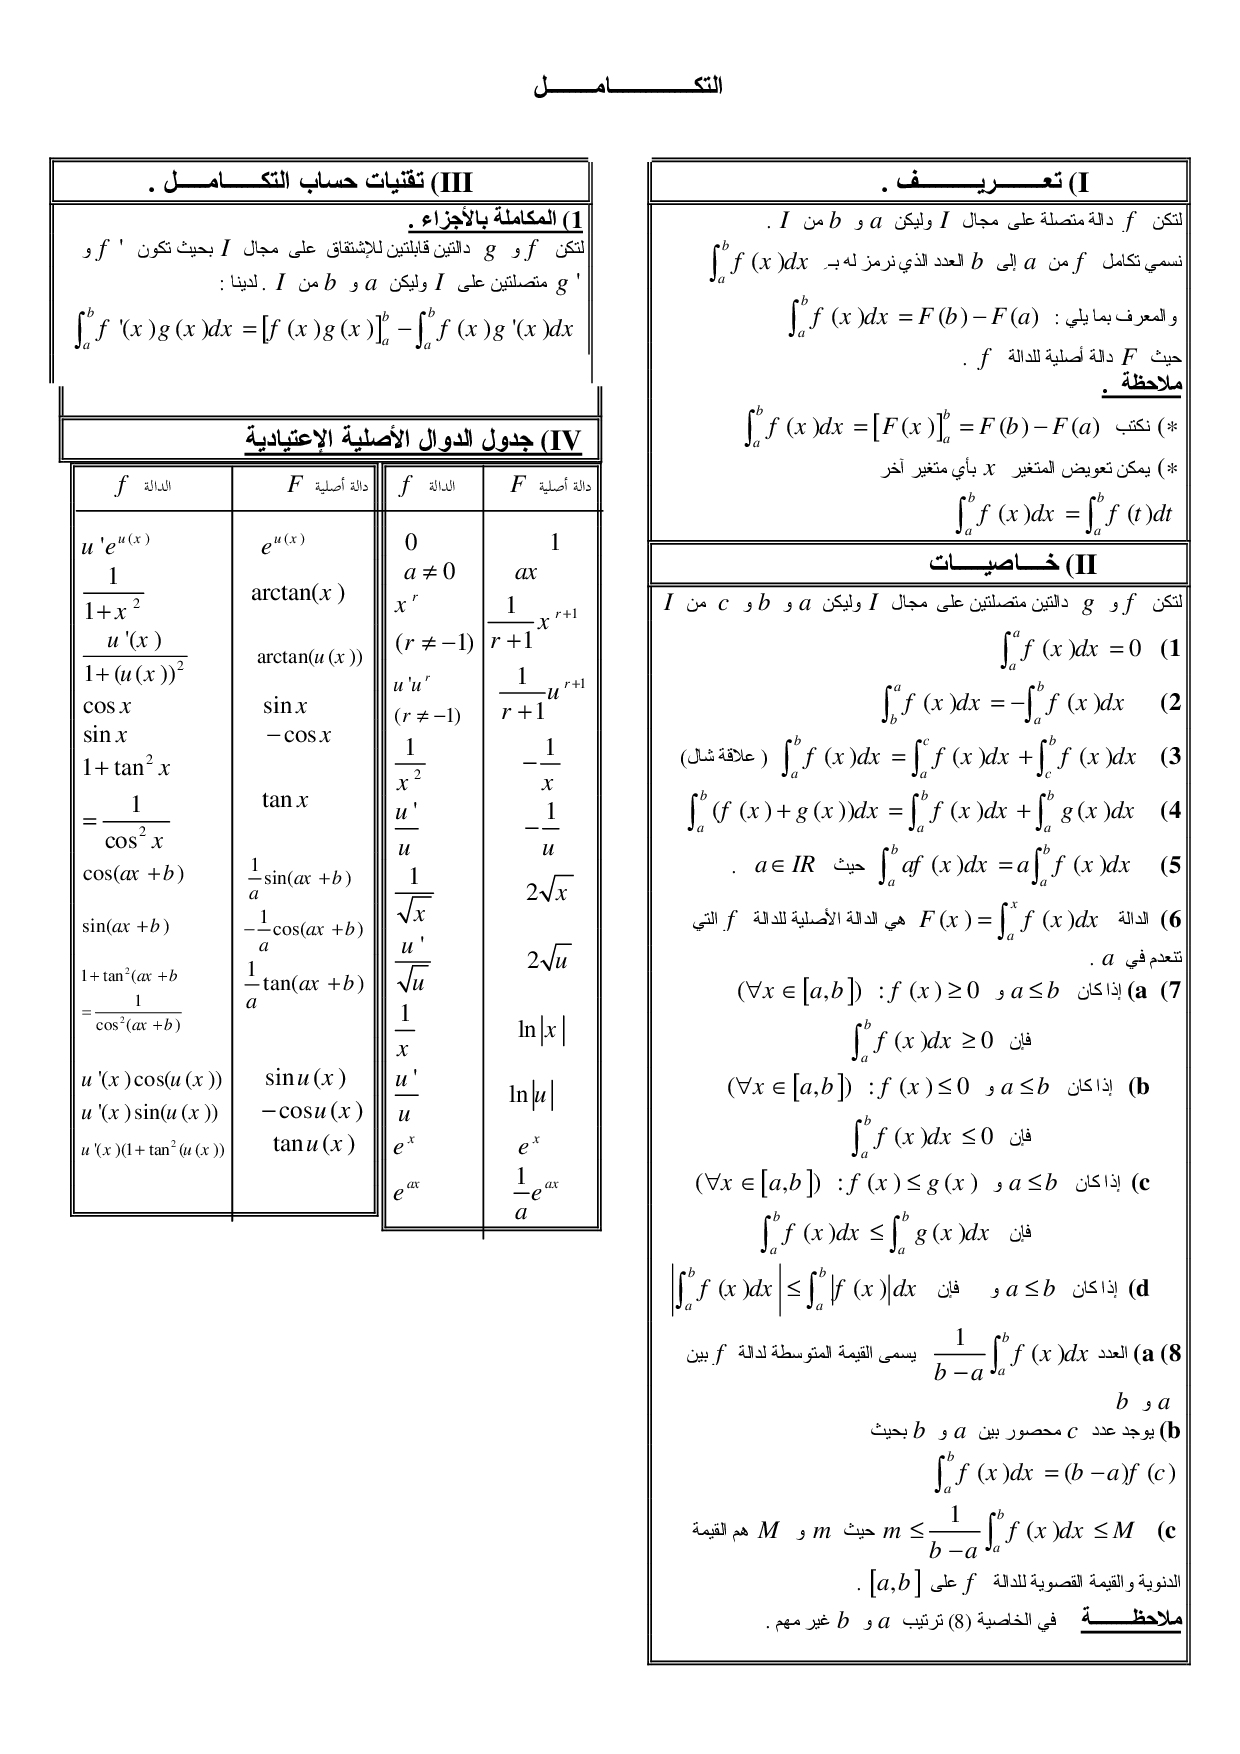 التكـــــــــامـــــــل
I) تعـــــــريـــــــــف .
لتكن f دالة متصلة على مجال I وليكن a و b من I .
نسمي تكامل f من a إلى b العدد الذي نرمز له بـ ∫_a^b f(x)dx
والمعرف بما يلي : ∫_a^b f(x)dx = F(b) − F(a)
حيث F دالة أصلية للدالة f .
ملاحظة .
*) نكتب ∫_a^b f(x)dx = [F(x)]_a^b = F(b) − F(a)
*) يمكن تعويض المتغير x بأي متغير آخر
∫_a^b f(x)dx = ∫_a^b f(t)dt
II) خـــاصيـــــات
لتكن f و g دالتين متصلتين على مجال I وليكن a و b و c من I
1) ∫_a^a f(x)dx = 0
2) ∫_b^a f(x)dx = −∫_a^b f(x)dx
3) ∫_a^b f(x)dx = ∫_a^c f(x)dx + ∫_c^b f(x)dx ( علاقة شال)
4) ∫_a^b (f(x) + g(x))dx = ∫_a^b f(x)dx + ∫_a^b g(x)dx
5) ∫_a^b af(x)dx = a∫_a^b f(x)dx حيث a ∈ IR .
6) الدالة F(x) = ∫_a^x f(x)dx هي الدالة الأصلية للدالة f التي
تنعدم في a .
7) a) إذا كان a ≤ b و (∀x ∈ [a,b]) : f(x) ≥ 0
فإن ∫_a^b f(x)dx ≥ 0
b) إذا كان a ≤ b و (∀x ∈ [a,b]) : f(x) ≤ 0
فإن ∫_a^b f(x)dx ≤ 0
c) إذا كان a ≤ b و (∀x ∈ [a,b]) : f(x) ≤ g(x)
فإن ∫_a^b f(x)dx ≤ ∫_a^b g(x)dx
d) إذا كان a ≤ b و فإن |∫_a^b f(x)dx| ≤ ∫_a^b |f(x)|dx
8) a) العدد 1/(b − a) ∫_a^b f(x)dx يسمى القيمة المتوسطة لدالة f بين
a و b
b) يوجد عدد c محصور بين a و b بحيث
∫_a^b f(x)dx = (b − a)f(c)
c) m ≤ 1/(b − a) ∫_a^b f(x)dx ≤ M حيث m و M هم القيمة
الدنوية والقيمة القصوية للدالة f على [a,b] .
ملاحظـــــــة في الخاصية (8) ترتيب a و b غير مهم .
III) تقنيات حساب التكـــــامـــــل .
1) المكاملة بالأجزاء .
لتكن f و g دالتين قابلتين للإشتقاق على مجال I بحيث تكون f ' و
g ' متصلتين على I وليكن a و b من I . لدينا :
∫_a^b f '(x)g(x)dx = [f(x)g(x)]_a^b − ∫_a^b f(x)g '(x)dx
IV) جدول الدوال الأصلية الإعتيادية
دالة أصلية F الدالة f
1 0
ax a ≠ 0
1/(r+1) x^(r+1) x^r (r ≠ −1)
1/(r+1) u^(r+1) u 'u^r (r ≠ −1)
−1/x 1/x^2
−1/u u '/u
2√x 1/√x
2√u u '/√u
ln|x| 1/x
ln|u| u '/u
e^x e^x
1/a e^(ax) e^(ax)
دالة أصلية F الدالة f
e^(u(x)) u 'e^(u(x))
arctan(x) 1/(1+x^2)
arctan(u(x)) u '(x)/(1+(u(x))^2)
sin x cos x
−cos x sin x
tan x 1+tan^2 x = 1/(cos^2 x)
1/a sin(ax+b) cos(ax+b)
−1/a cos(ax+b) sin(ax+b)
1/a tan(ax+b) 1+tan^2(ax+b = 1/(cos^2(ax+b))
sin u(x) u '(x)cos(u(x))
−cos u(x) u '(x)sin(u(x))
tan u(x) u '(x)(1+tan^2(u(x))